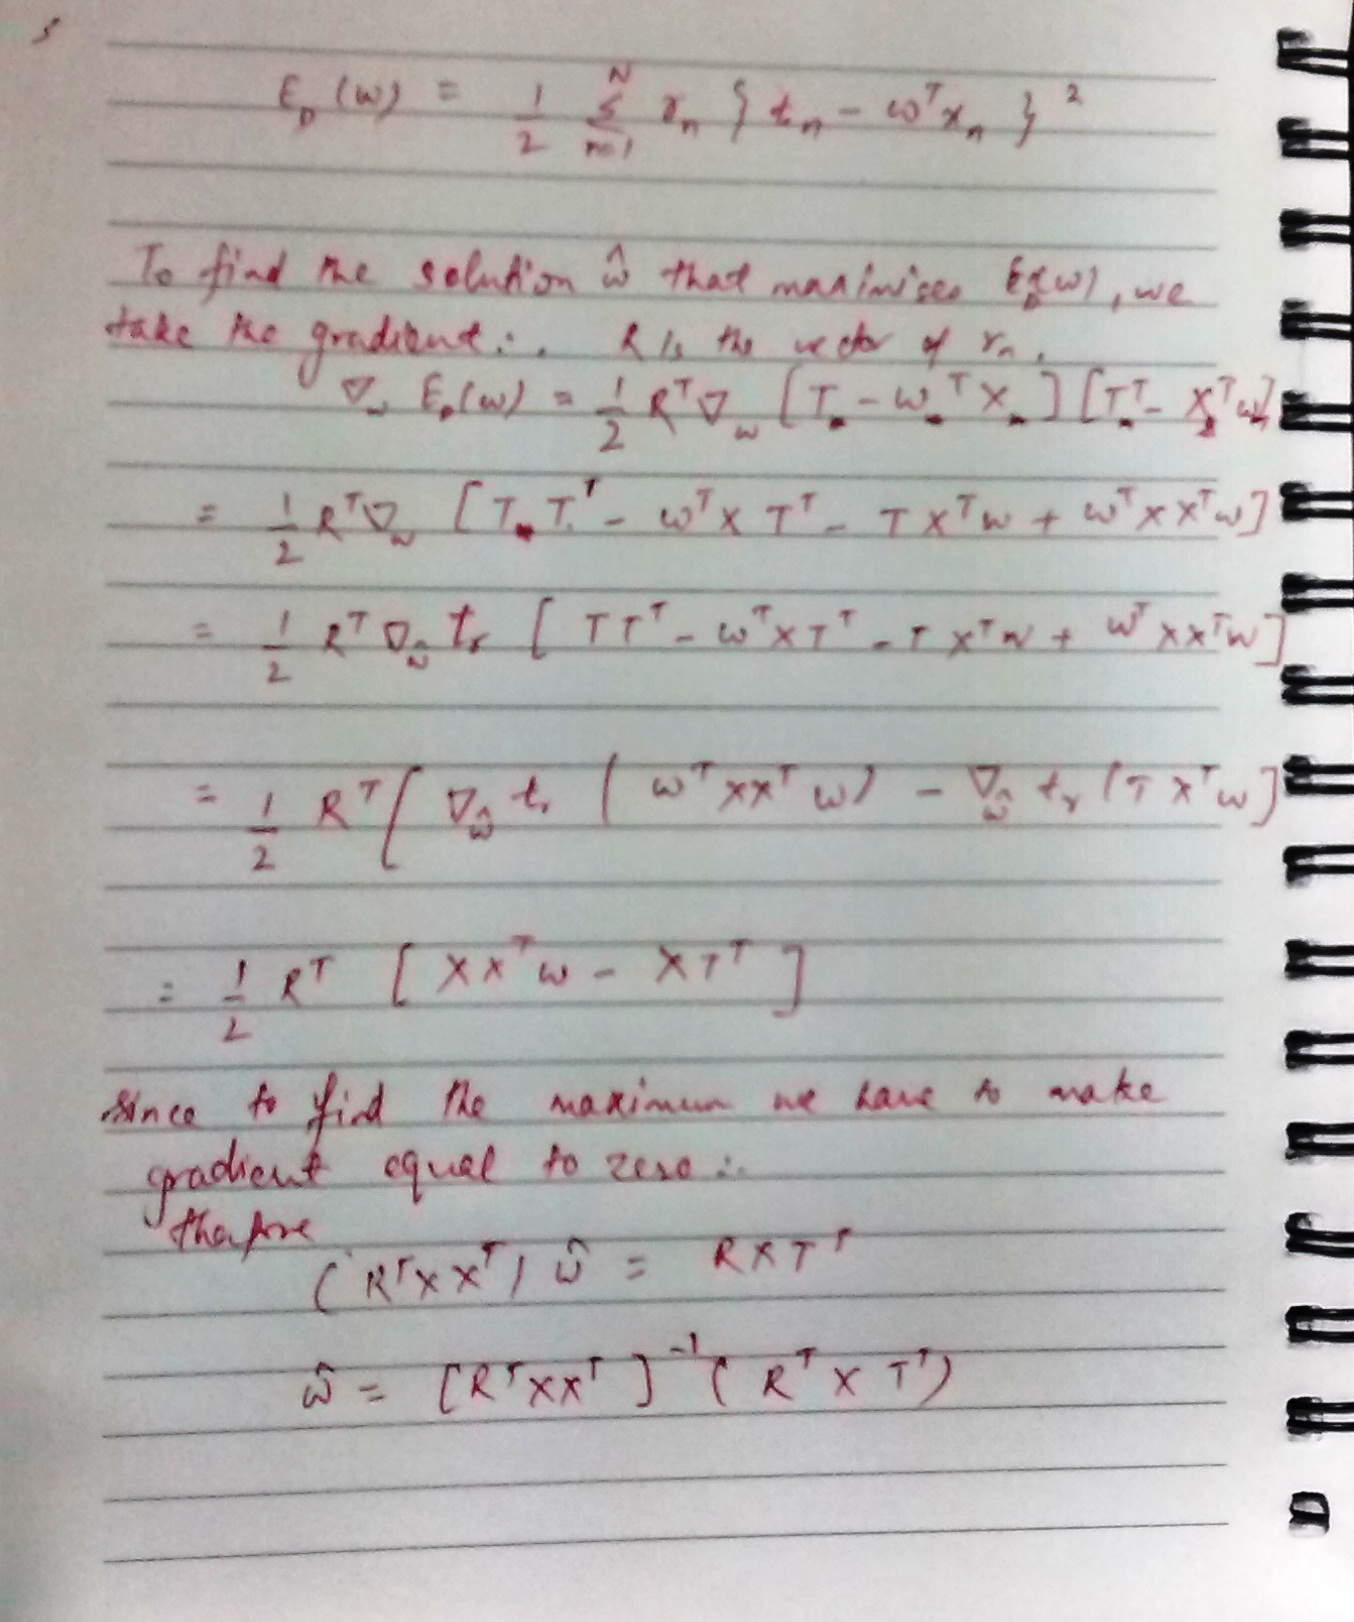 E_D(w) = 1/2 Σ_{n=1}^{N} r_n { t_n - w^T x_n }^2
To find the solution ŵ that maximises E_D(w), we
take the gradient ∴. R is the vector of r_n.
∇_w E_D(w) = 1/2 R^T ∇_w [T - w^T X] [T^T - X^T w]
= 1/2 R^T ∇_w [T T^T - w^T X T^T - T X^T w + w^T X X^T w]
= 1/2 R^T ∇_ŵ tr [T T^T - w^T X T^T - T X^T w + w^T X X^T w]
= 1/2 R^T [ ∇_ŵ tr ( w^T X X^T w) - ∇_ŵ tr (T X^T w]
= 1/2 R^T [ X X^T w - X T^T ]
since to find the maximum we have to make
gradient equal to zero ∴
(R^T X X^T) ŵ = R X T^T
ŵ = [R^T X X^T]^{-1} (R^T X T^T)